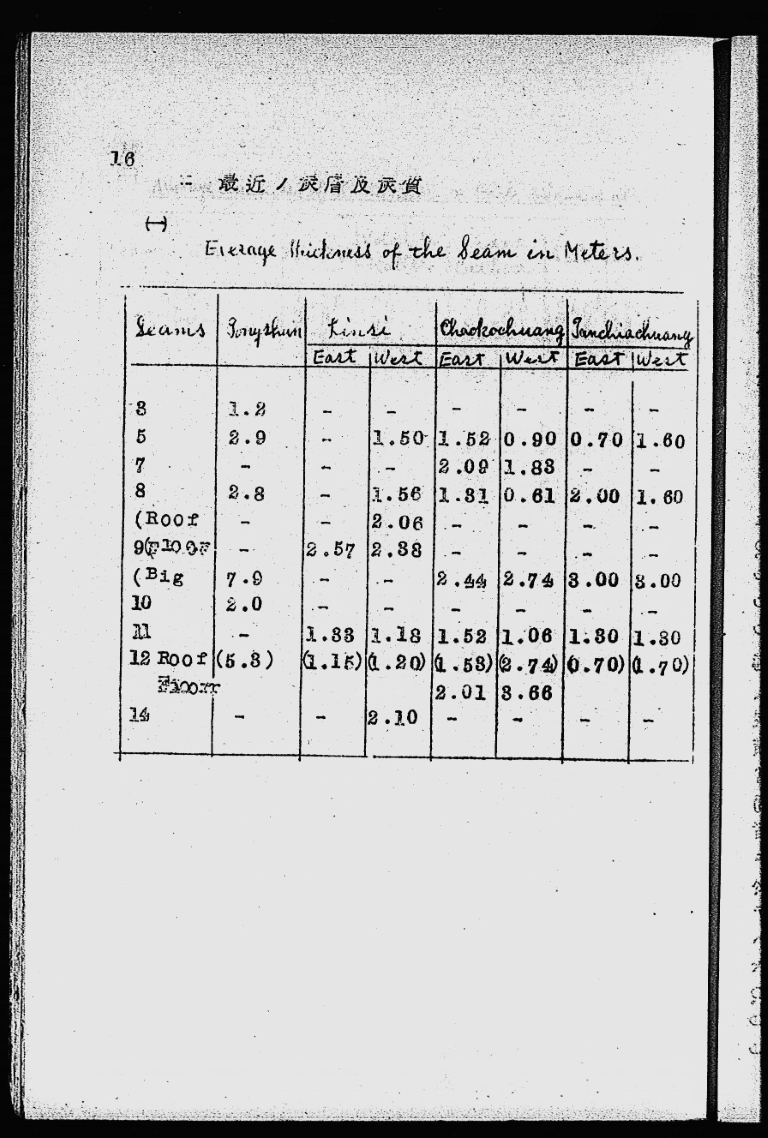 16
二 最近ノ炭層及炭質
(一)
Everage thickness of the Seam in Meters.
Seams Tongshan Linsi Chaokochuang Tanchiachuang
East West East West East West
3 1.2 - - - - - -
5 2.9 - 1.50 1.52 0.90 0.70 1.60
7 - - - 2.09 1.83 - -
8 2.8 - 1.56 1.31 0.61 2.00 1.60
(Roof - - 2.06 - - - -
9(Floor - 2.57 2.38 - - - -
(Big 7.9 - - 2.44 2.74 3.00 3.00
10 2.0 - - - - - -
11 - 1.33 1.18 1.52 1.06 1.30 1.30
12 Roof (5.3) (1.15) (1.20) (1.53) (2.74) (0.70) (1.70)
Floor 2.01 3.66
14 - - 2.10 - - - -